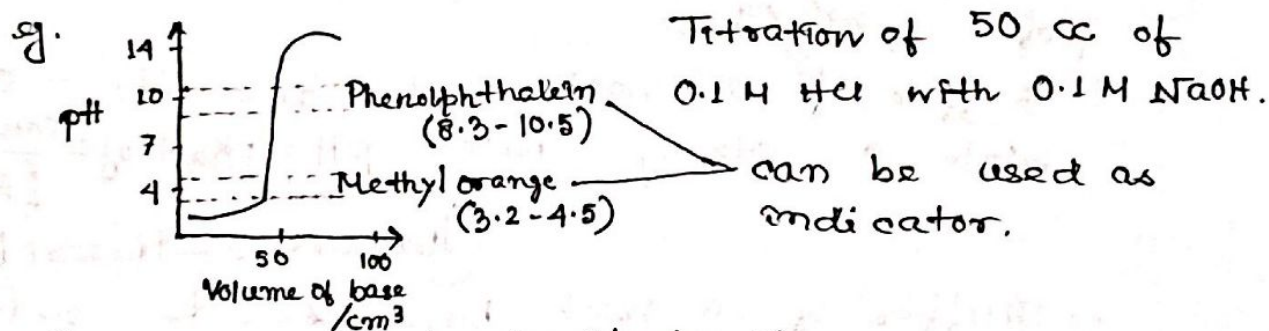 eg.
14
10
pH
7
4
Phenolphthalein
(8.3-10.5)
Methyl orange
(3.2-4.5)
50 100
Volume of base
/cm³
Titration of 50 cc of
0.1 M HCl with 0.1 M NaOH.
can be used as
indicator.